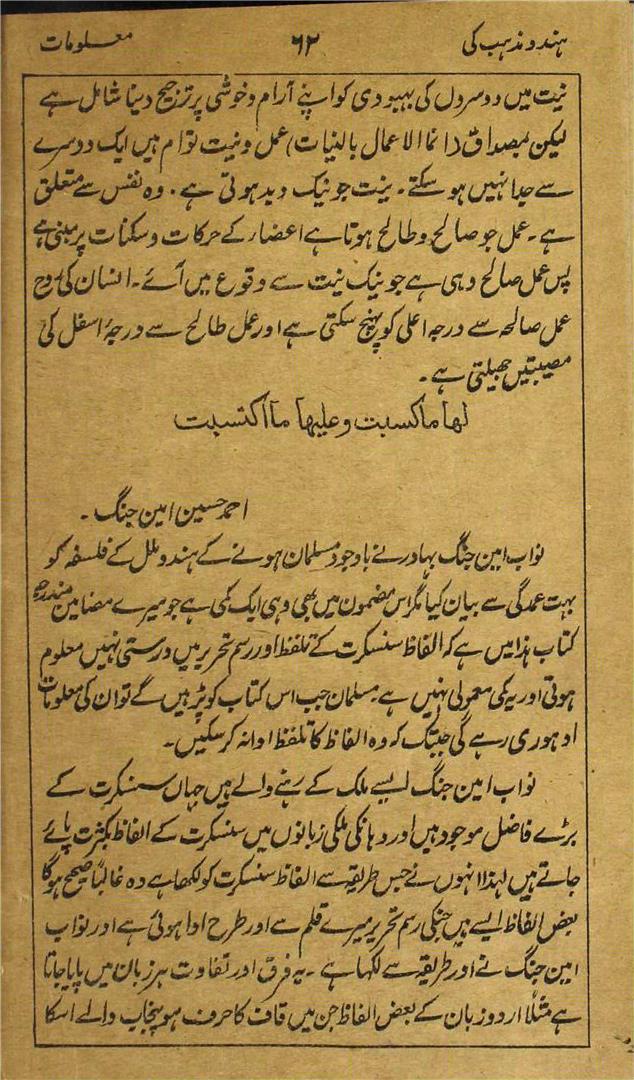 ہندو مذہب کی ۶۲ معلومات
نیت میں دوسروں کی بہبودی کو اپنے آرام و خوشی پر ترجیح دینا شامل ہے
لیکن بمصداق (انما الاعمال بالنیات) عمل و نیت توام ہیں ایک دوسرے
سے جدا نہیں ہو سکتے۔ نیت جو نیک و بد ہوتی ہے۔ وہ نفس سے متعلق
ہے۔ عمل جو صالح و طالح ہوتا ہے اعضار کے حرکات و سکنات پر مبنی ہے
پس عمل صالح وہی ہے جو نیک نیت سے وقوع میں آئے۔ انسان کی روح
عمل صالحہ سے درجہ اعلی کو پہنچ سکتی ہے اور عمل طالح سے درجۂ اسفل کی
مصیبتیں جھیلتی ہے۔
لها ما كسبت و عليها ما اكتسبت
احمد حسین امین جنگ۔
نواب امین جنگ بہادر نے باوجود مسلمان ہونے کے ہندو ملل کے فلسفہ کو
بہت عمدگی سے بیان کیا مگر اس مضمون میں بھی وہی ایک کمی ہے جو میرے مضامین مندرجہ
کتاب ہذا میں ہے کہ الفاظ سنسکرت کے تلفظ اور رسم تحریر میں درستی نہیں معلوم
ہوتی اور یہ کمی معمولی نہیں ہے۔ مسلمان جب اس کتاب کو پڑہیں گے تو ان کی معلومات
ادہوری رہے گی جبتک کہ وہ الفاظ کا تلفظ ادا نہ کر سکیں۔
نواب امین جنگ ایسے ملک کے رہنے والے ہیں جہاں سنسکرت کے
بڑے فاضل موجود ہیں اور وہانکی ملکی زبانوں میں سنسکرت کے الفاظ بکثرت پائے
جاتے ہیں لہذا انہوں نے جس طریقہ سے الفاظ سنسکرت کو لکھا ہے وہ غالباً صحیح ہوگا
بعض الفاظ ایسے ہیں جنکی رسم تحریر میرے قلم سے اور طرح ادا ہوئی ہے اور نواب
امین جنگ نے اور طریقہ سے لکہا ہے۔ یہ فرق اور تفاوت ہر زبان میں پایا جاتا
ہے مثلاً اردو زبان کے بعض الفاظ جن میں قاف کا حرف ہو پنجاب والے اسکا